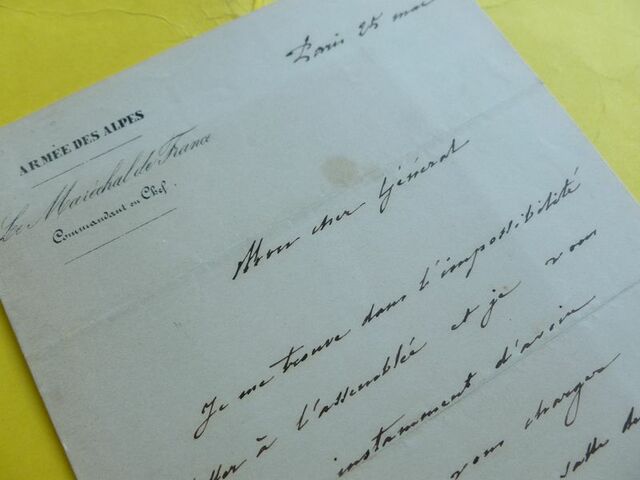 Paris 25 mai
ARMÉE DES ALPES
Le Maréchal de France
Commandant en Chef.
Mon cher Général
Je me trouve dans l'impossibilité
à l'assemblée et je vous
instamment d'avoir
vous charger
salle